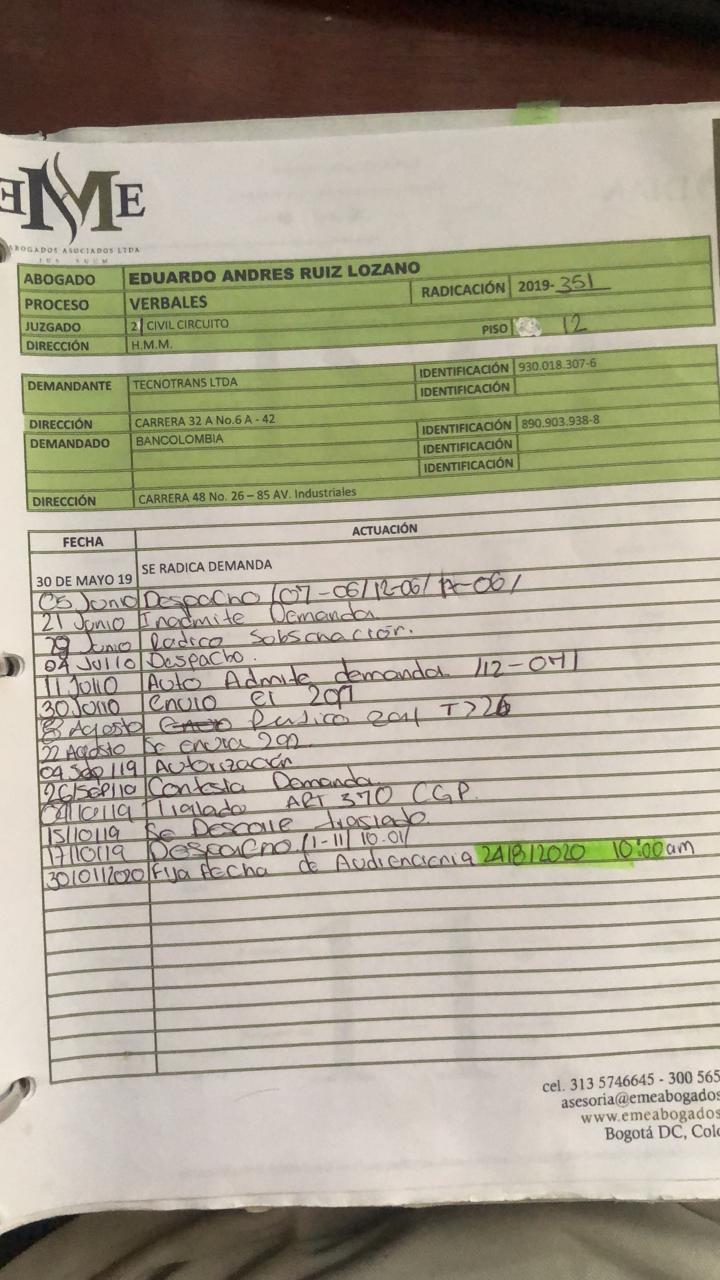 EME
ABOGADOS ASOCIADOS LTDA
IUS SUUM
ABOGADO EDUARDO ANDRES RUIZ LOZANO
PROCESO VERBALES RADICACIÓN 2019-351
JUZGADO 21 CIVIL CIRCUITO PISO 12
DIRECCIÓN H.M.M.
DEMANDANTE TECNOTRANS LTDA IDENTIFICACIÓN 930.018.307-6
IDENTIFICACIÓN
DIRECCIÓN CARRERA 32 A No.6 A - 42
DEMANDADO BANCOLOMBIA IDENTIFICACIÓN 890.903.938-8
IDENTIFICACIÓN
IDENTIFICACIÓN
DIRECCIÓN CARRERA 48 No. 26 – 85 AV. Industriales
FECHA ACTUACIÓN
30 DE MAYO 19 SE RADICA DEMANDA
05 Junio Despacho /07-06/12-06/
21 Junio Inadmite Demanda
Junio Radico
04 Julio Despacho.
11 Julio Auto Admite demanda /12-07/
30 Julio envio el 291
8 Agosto Radico 291
22 Agosto Se envia 292
04 Sep/19 Autorización
26/Sep/19 Contesta Demanda
Traslado ART 370 CGP.
15/10/19 Se Descorre traslado
17/10/19 Despacho /1-11/10.01/
30/01/2020 Fija fecha de 24/8/2020 10:00am
cel. 313 5746645 - 300 565
asesoria@emeabogados
www.emeabogados
Bogotá DC, Colo